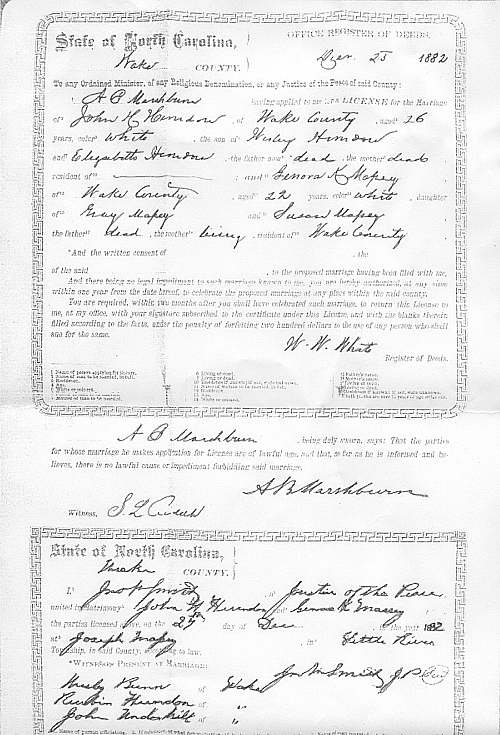 State of North Carolina,
OFFICE REGISTER OF DEEDS.
Wake COUNTY.
Decr 23 1882
To any Ordained Minister, of any Religious Denomination, or any Justice of the Peace of said County:
A B Marshburn having applied to me for a LICENSE for the Marriage
of John H Herndon, of Wake County, aged 26
years, color white, the son of Wesley Herndon
and Elizabeth Herndon the father now dead, the mother dead
resident of and Genora K Massey
of Wake County, aged 22 years, color white, daughter
of Gray Massey and Susan Massey
the father dead, the mother living, resident of Wake County
And the written consent of , the
of the said , to the proposed marriage having been filed with me.
And there being no legal impediment to such marriage known to me, you are hereby authorized, at any time
within one year from the date hereof, to celebrate the proposed marriage at any place within the said county.
You are required, within two months after you shall have celebrated such marriage, to return this License to
me, at my office, with your signature subscribed to the certificate under this License, and with the blanks therein
filled according to the facts, under the penalty of forfeiting two hundred dollars to the use of any person who shall
sue for the same.
W. W. White
Register of Deeds.
A B Marshburn, being duly sworn, says: That the parties
for whose marriage he makes application for License are of lawful age, and that, so far as he is informed and be-
lieves, there is no lawful cause or impediment forbidding said marriage.
A B Marshburn
Witness, S L
State of North Carolina,
Wake COUNTY.
I, Jno M Smith, a Justice of the Peace
united in Matrimony John H Herndon and Genora K Massey
the parties licensed above, on the day of Dec in the year 1882
at Joseph Massey in Little River
Township, in said County, according to law.
Jno M Smith J P
WITNESSES PRESENT AT MARRIAGE:
Wesley Bunn of Wake
Reubin Herndon of "
John Underhill of "